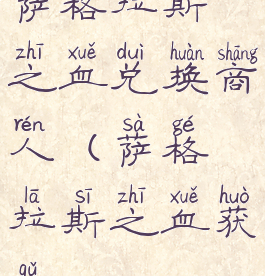 萨格拉斯
zhī xuě duì huàn shāng
之血兑换商
rén sà gé
人（萨格
lā sī zhī xuě huò
拉斯之血获
qǔ